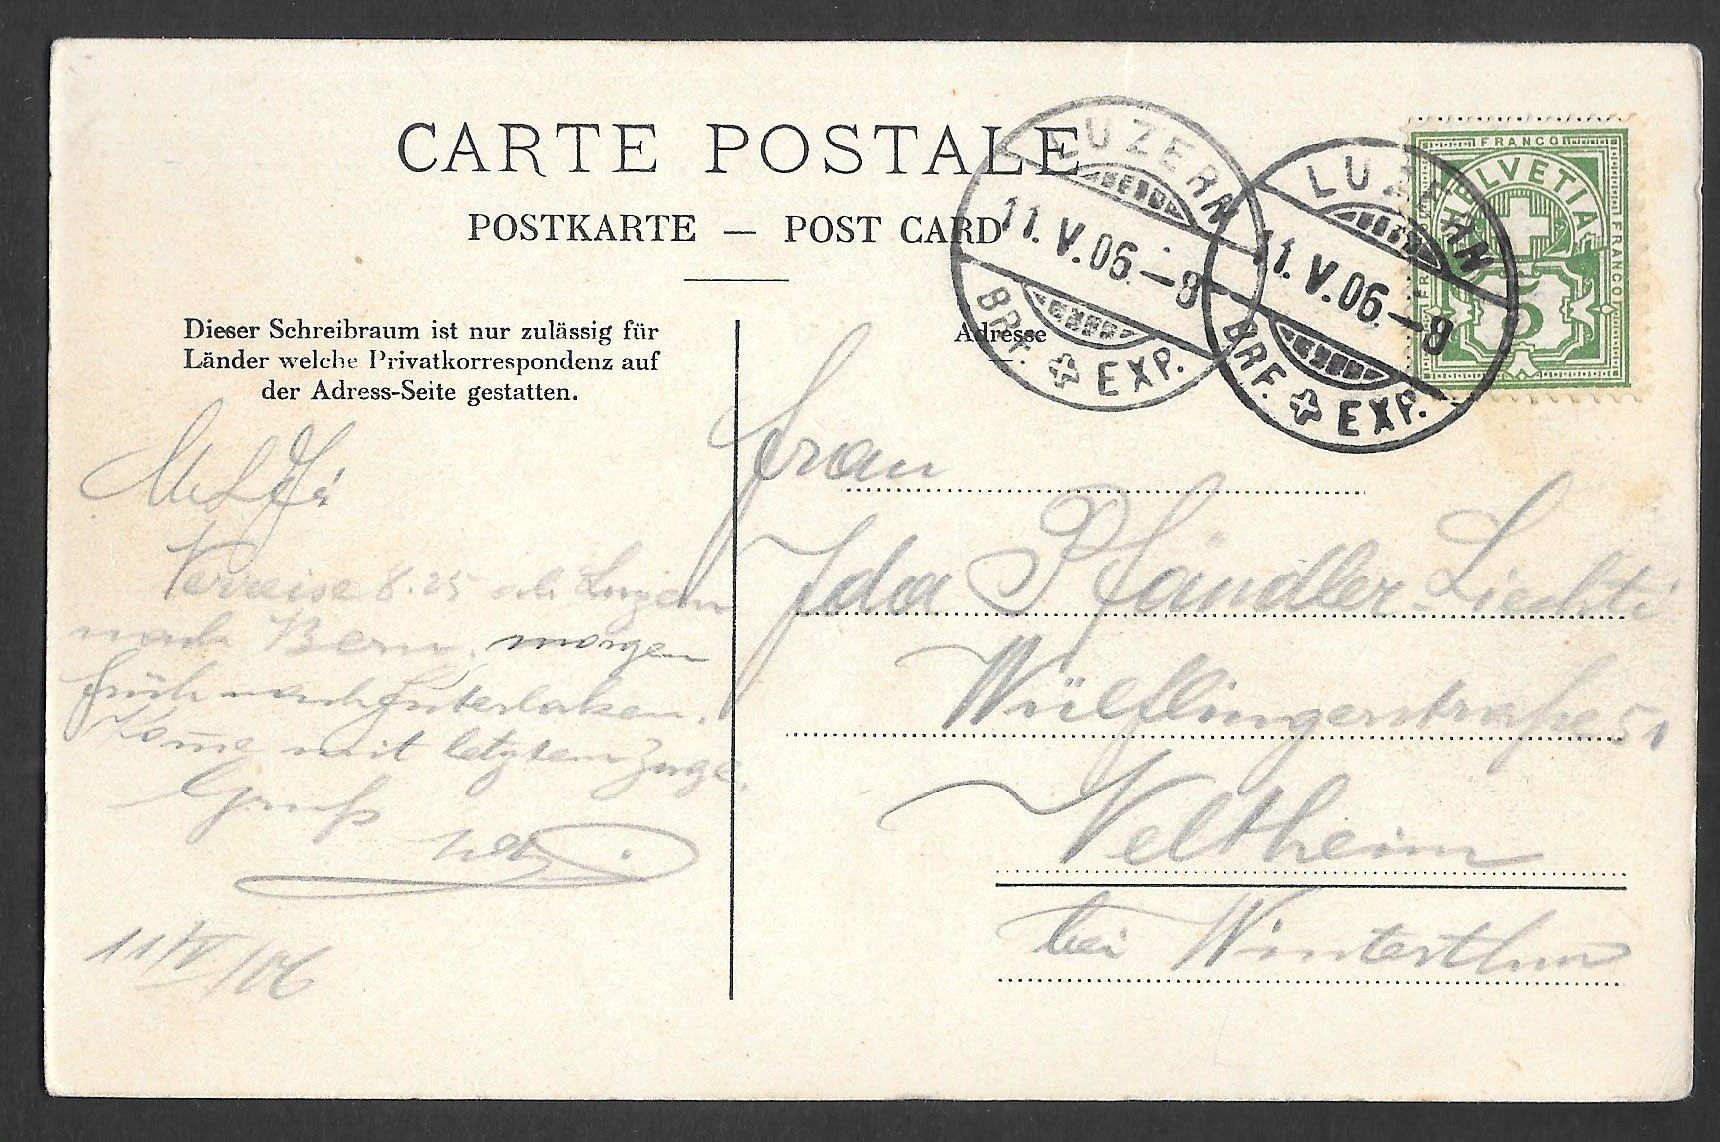 CARTE POSTALE
POSTKARTE — POST CARD
Dieser Schreibraum ist nur zulässig für
Länder welche Privatkorrespondenz auf
der Adress-Seite gestatten.
Adresse
LUZERN
11.V.06.–8
BRF. EXP.
LUZERN
11.V.06.–8
BRF. EXP.
FRANCO
HELVETIA
FRANCO
FRANCO
5
M. L.
Verreise 8.25 ab Luzern
nach Bern, morgen
früh nach Interlaken.
Kome mit letztem Zuge.
Gruß
11/V/06
Frau
Ida Pfändler-Liechti
Wülflingerstraße 51
Veltheim
bei Winterthur